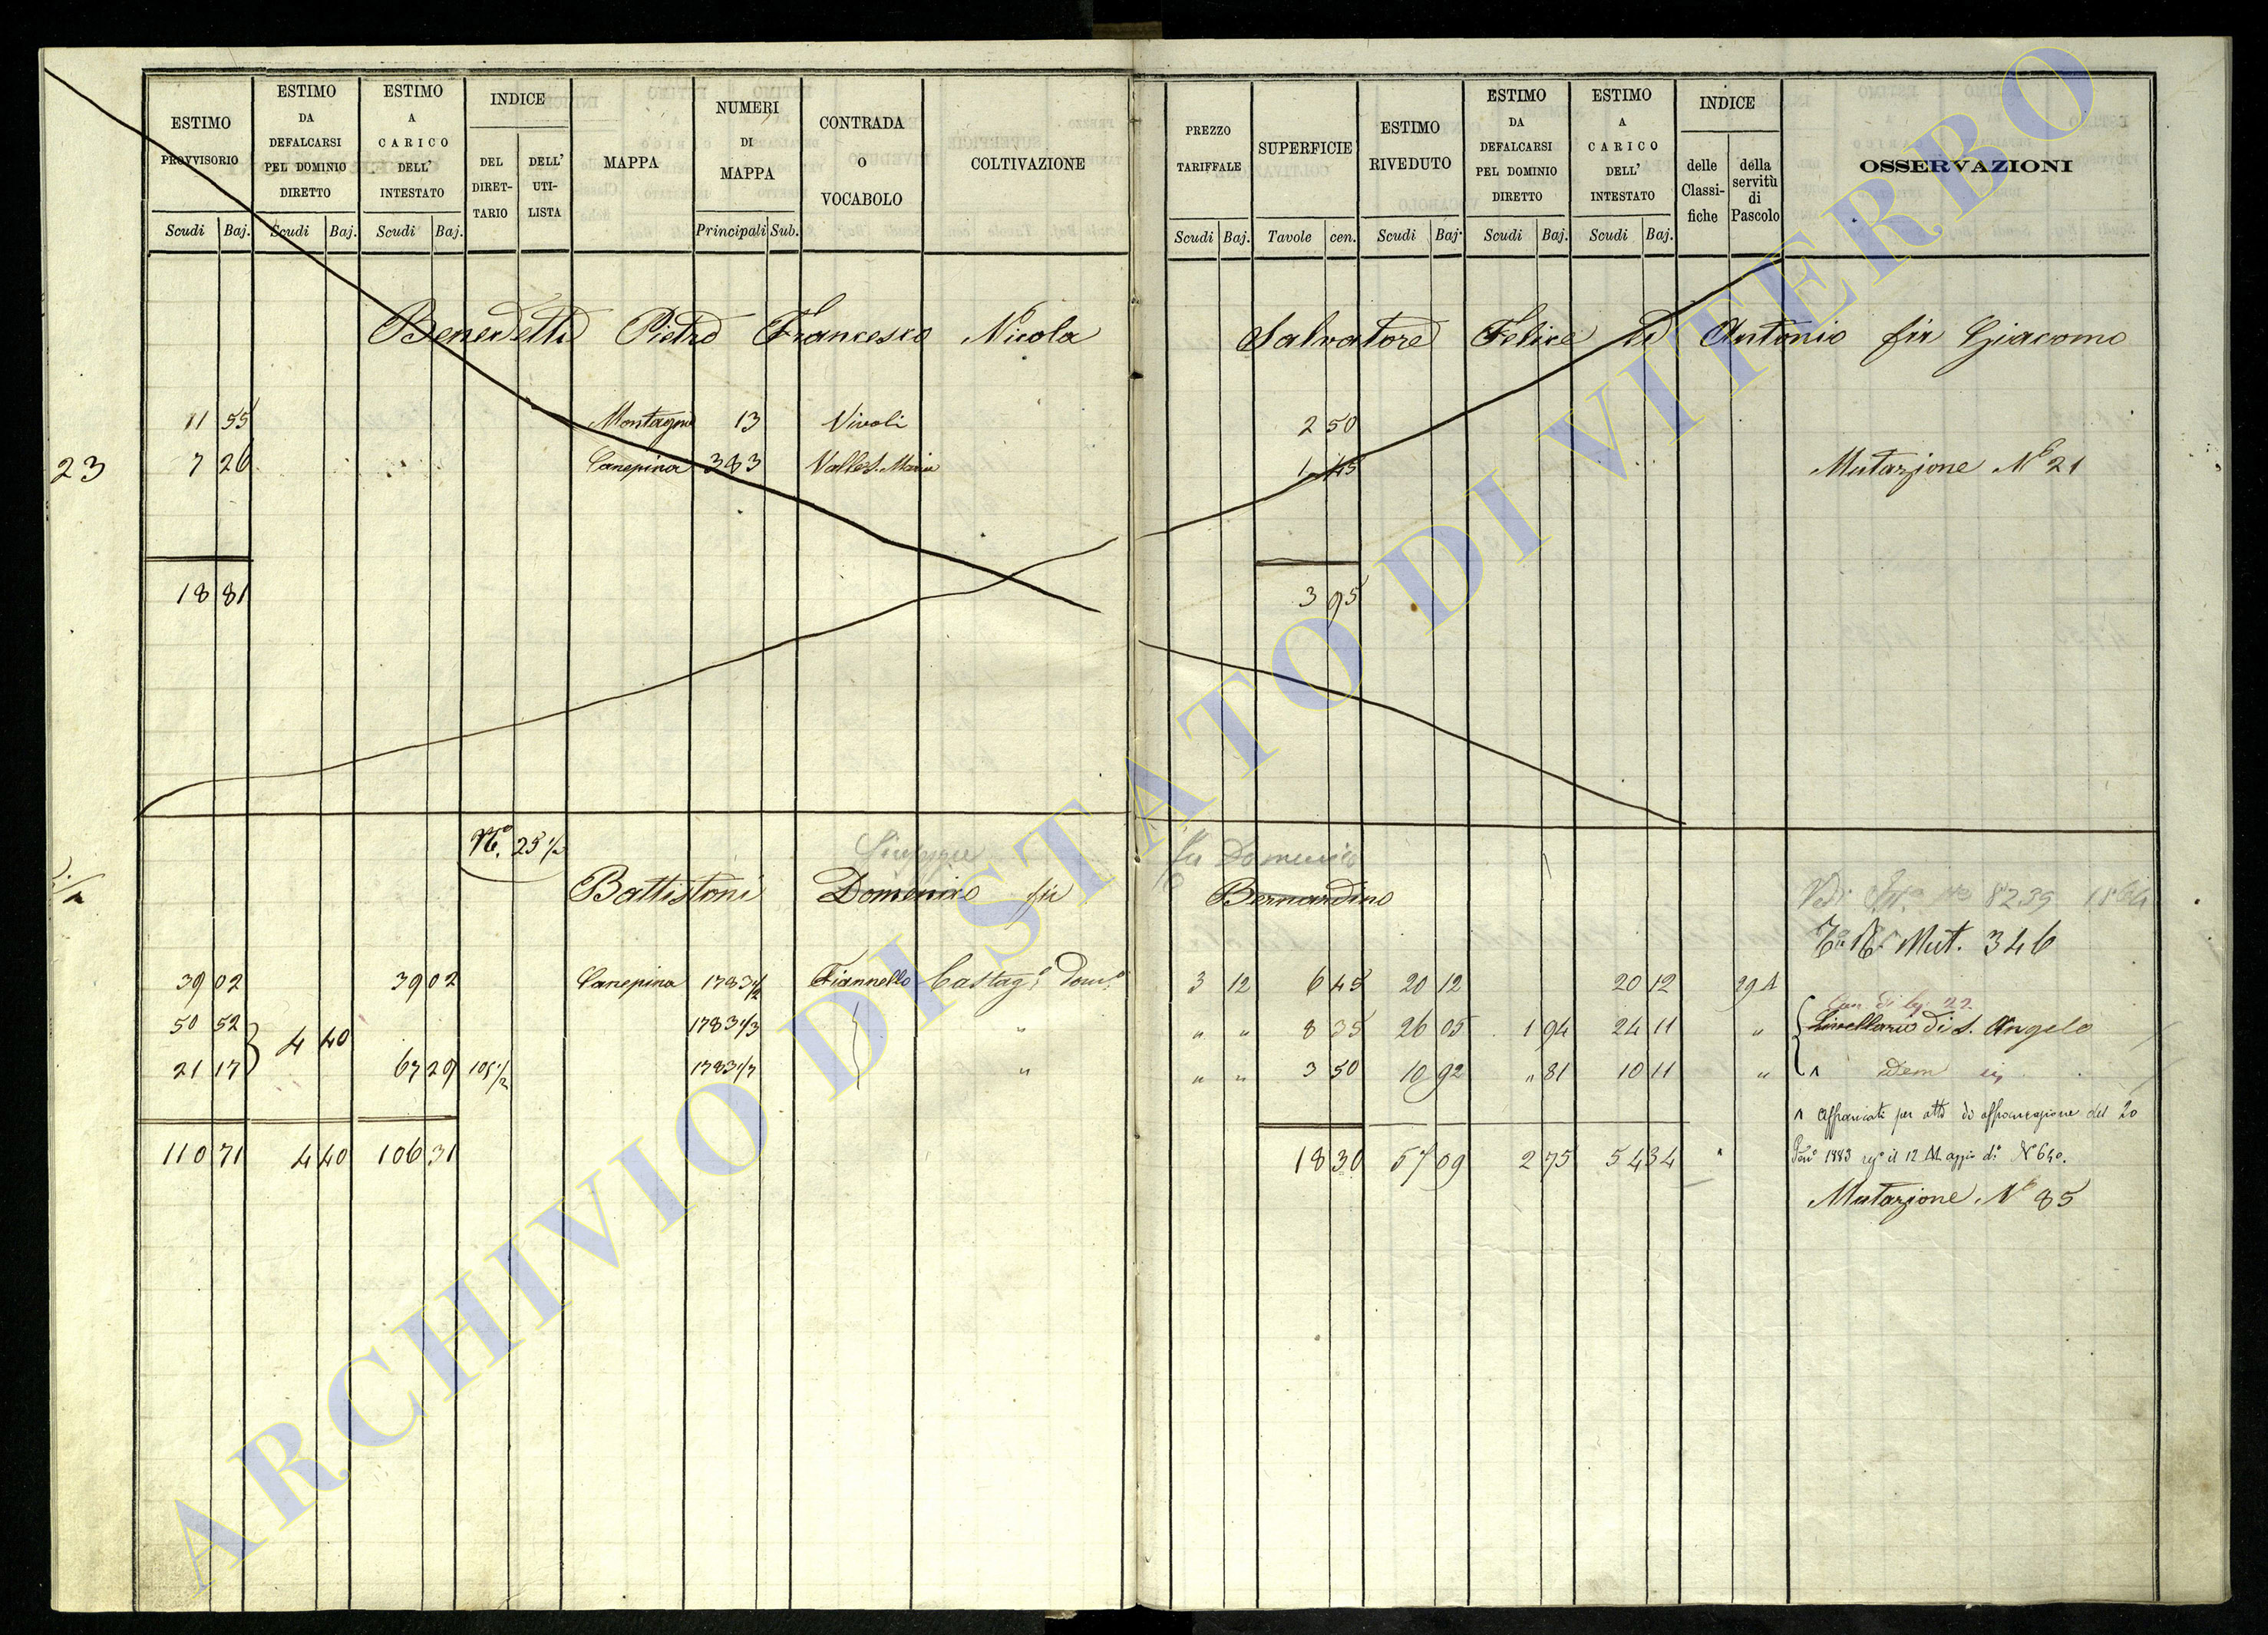 ESTIMO PROVVISORIO
ESTIMO DA DEFALCARSI PEL DOMINIO DIRETTO
ESTIMO A CARICO DELL' INTESTATO
INDICE
DEL DIRETTARIO
DELL' UTILISTA
MAPPA
NUMERI DI MAPPA
CONTRADA O VOCABOLO
COLTIVAZIONE
PREZZO TARIFFALE
SUPERFICIE
ESTIMO RIVEDUTO
ESTIMO DA DEFALCARSI PEL DOMINIO DIRETTO
ESTIMO A CARICO DELL' INTESTATO
INDICE
delle Classifiche
della servitù di Pascolo
OSSERVAZIONI
Scudi Baj. Scudi Baj. Scudi Baj. Principali Sub. Scudi Baj. Tavole cen. Scudi Baj. Scudi Baj. Scudi Baj.
Benedetti Pietro Francesco Nicola Salvatore Felice ed Antonio fu Giacomo
11 55 Montagna 13 Vivoli 2 50
23 7 26 Canepina 383 Valle S. Maria 1 45 Mutazione N° 21
18 81 3 95
N°. 25 1/2 Giuseppe fu Domenico
Battistoni Domenico fu Bernardino
8239
Mut. 346
39 02 39 02 Canepina 1783 1/2 Fiannello Castag° Dom° 3 12 6 45 20 12 20 12 29 A
50 52 4 40 1783 1/3 " " " 8 35 26 05 1 94 24 11 " Livellario di S. Angelo
21 17 67 29 105 1/2 1783 1/7 " " " 3 50 10 92 " 81 10 11 " Idem
affrancati per atto di affrancazione del 20
1883 N° 640.
110 71 4 40 106 31 18 30 57 09 2 75 54 34
Mutazione N° 85
ARCHIVIO DI STATO DI VITERBO